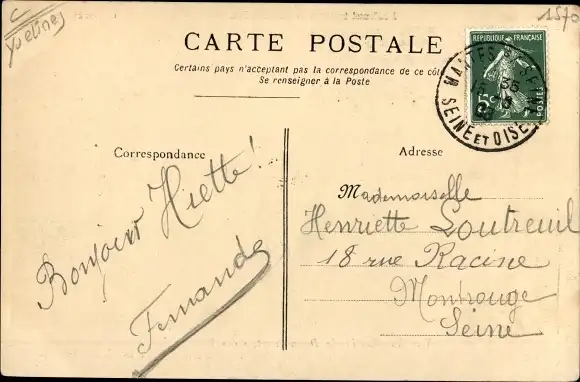 Yvelines
1570
CARTE POSTALE
Certains pays n'acceptent pas la correspondance de ce côté
Se renseigner à la Poste
REPUBLIQUE FRANÇAISE
5c
POSTES
SEINE ET OISE
Correspondance
Adresse
Bonjour Hiette!
Fernande
Mademoiselle
Henriette Loutreuil
18 rue Racine
Montrouge
Seine